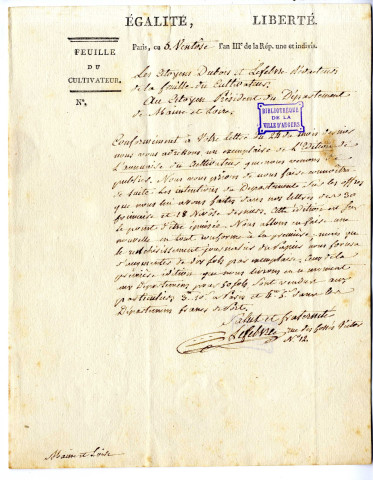 ÉGALITÉ, LIBERTÉ.
FEUILLE
DU
CULTIVATEUR.
Nº.
Paris, ce 5 Ventôse l'an IIIe de la Rép. une et indivis.
Les Citoyens Dubois et Lefebvre Rédacteurs
de la feuille du Cultivateur,
Au Citoyen Président du Département
de Maine et Loire.
BIBLIOTHÈQUE
DE LA
VILLE D'ANGERS
Conformément à votre lettre du 28 du mois dernier
nous vous adressons un exemplaire de l'Edition de
l'annuaire du Cultivateur que nous venons de
publier. Nous vous prions de nous faire connoître
de suite les intentions du Département sur les offres
que nous lui avons faites dans nos lettres des 30
frimaire et 18 Nivôse derniers. Cette édition est sur
le point d'être épuisée. Nous allons en faire une
nouvelle en tout conforme à la première; mais que
le renchérissement journalier du Papier nous forcera
d'augmenter de dix sols par exemplaire. Ceux de la
première édition que nous livrons en ce moment
aux Départemens pour 50 sols sont vendus aux
particuliers 3. 10. à Paris et 4# 5. dans les
Départemens francs de Port.
Salut et fraternité
Lefebvre
rue des fossés Victor
Nº 12.
Maine et Loire